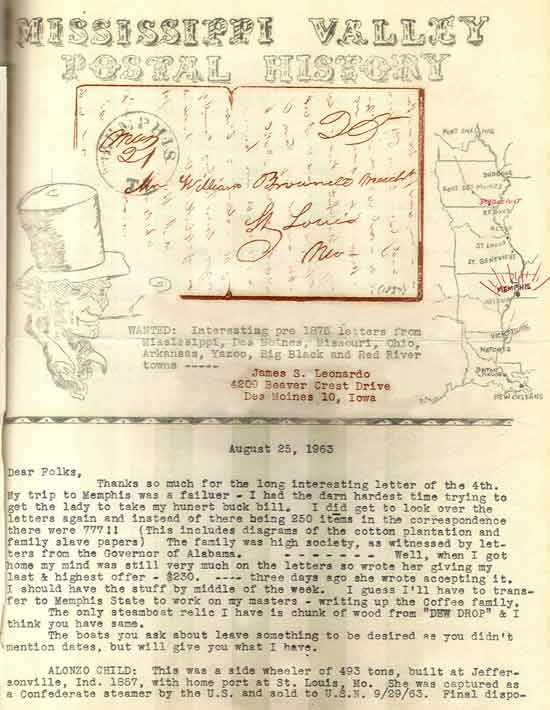 MISSISSIPPI VALLEY
POSTAL HISTORY
MEMPHIS
T
Mar
21
Mr William Brownell Mercht
St Louis
Mo
(1837)
FORT SNELLING
DUBUQUE
FORT DES MOINES
KEOKUK
ALTON
ST LOUIS
ST. GENEVIEVE
MEMPHIS
VICKSBURG
NATCHEZ
BATON ROUGE
NEW ORLEANS
WANTED: Interesting pre 1875 letters from
Mississippi, Des Moines, Missouri, Ohio,
Arkansas, Yazoo, Big Black and Red River
towns -----
James S. Leonardo
4209 Beaver Crest Drive
Des Moines 10, Iowa
August 25, 1963
Dear Folks,
Thanks so much for the long interesting letter of the 4th.
My trip to Memphis was a failuer - I had the darn hardest time trying to
get the lady to take my hunert buck bill. I did get to look over the
letters again and instead of there being 250 items in the correspondence
there were 777!! (This includes diagrams of the cotton plantation and
family slave papers) The family was high society, as witnessed by let-
ters from the Governor of Alabama. - - - - - - - Well, when I got
home my mind was still very much on the letters so wrote her giving my
last & highest offer - $230. ---- three days ago she wrote accepting it.
I should have the stuff by middle of the week. I guess I'll have to trans-
fer to Memphis State to work on my masters - writing up the Coffee family.
The only steamboat relic I have is chunk of wood from "DEW DROP" & I
think you have same.
The boats you ask about leave something to be desired as you didn't
mention dates, but will give you what I have.
ALONZO CHILD: This was a side wheeler of 493 tons, built at Jeffer-
sonville, Ind. 1857, with home port at St. Louis, Mo. She was captured as
a Confederate steamer by the U.S. and sold to U.S.N. 9/29/63. Final dispo-